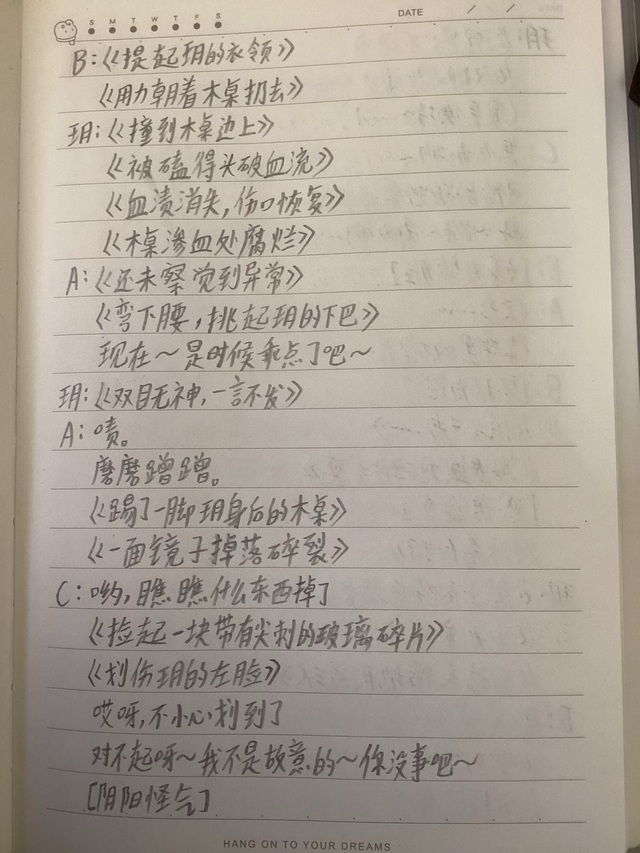 S M T W T F S
DATE / /
B：《提起玥的衣领》
《用力朝着木桌扔去》
玥：《撞到木桌边上》
《被磕得头破血流》
《血渍消失，伤口恢复》
《木桌渗血处腐烂》
A：《还未察觉到异常》
《弯下腰，挑起玥的下巴》
现在～是时候乖点了吧～
玥：《双目无神，一言不发》
A：啧。
磨磨蹭蹭。
《踢了一脚玥身后的木桌》
《一面镜子掉落碎裂》
C：哟，瞧瞧什么东西掉了
《捡起一块带有尖刺的玻璃碎片》
《划伤玥的左脸》
哎呀，不小心划到了
对不起呀～我不是故意的～你没事吧～
[阴阳怪气]
HANG ON TO YOUR DREAMS